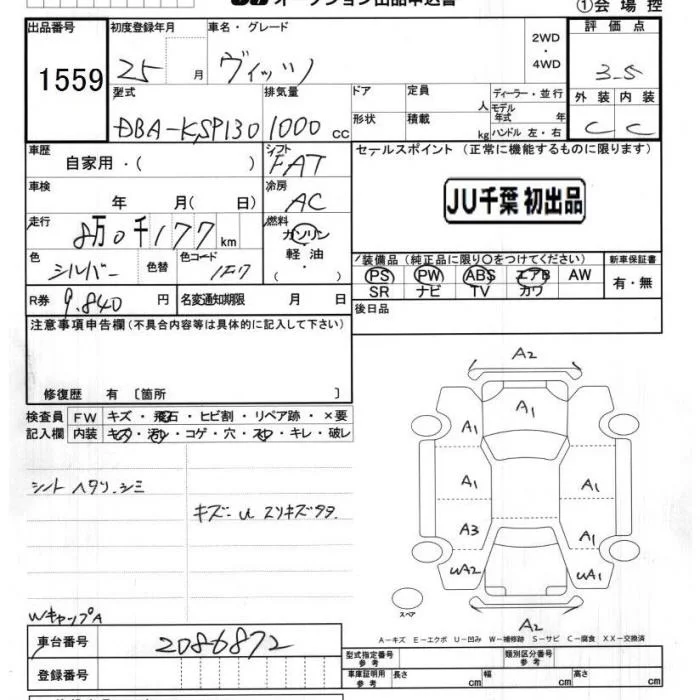 オークション出品申込書
①会場控
出品番号 初度登録年月 車名・グレード 2WD・4WD 評価点
1559 25 月 ヴィッツ 3-5
型式 排気量 ドア 定員 人 ディーラー・並行 外装 内装
DBA-KSP130 1000cc 形状 積載 kg モデル年式 年 ハンドル 左・右 C C
車歴 シフト セールスポイント (正常に機能するものに限ります)
自家用・( ) FAT
車検 冷房 JU千葉 初出品
年 月( 日) AC
走行 燃料
8万0千177km ガソリン
色 シルバー 色替 色コード 1F7 軽油 ・ ( ) 装備品 (純正品に限り○をつけてください) 新車保証書
PS PW ABS エアB AW 有・無
SR ナビ TV カワ
R券 9.840円 名変通知期限 月 日 後日品
注意事項申告欄(不具合内容等は具体的に記入して下さい)
修復歴 有 〔箇所 〕
検査員 FW キズ・飛石・ヒビ割・リペア跡・×要
記入欄 内装 キズ・汚れ・コゲ・穴・スレ・キレ・破レ
シート ヘタリ.シミ
キズ=U スリキズ多々.
WキャップA
A2
A1
A1
A1
A1
A3
A1
UA2
UA1
スペア
A2
A-キズ E-エクボ U-凹み W-補修跡 S-サビ C-腐食 XX-交換済
車台番号 2086872
登録番号
型式指定番号 参考 類別区分番号 参考
車庫証明用 参考 長さ cm 幅 cm 高さ cm